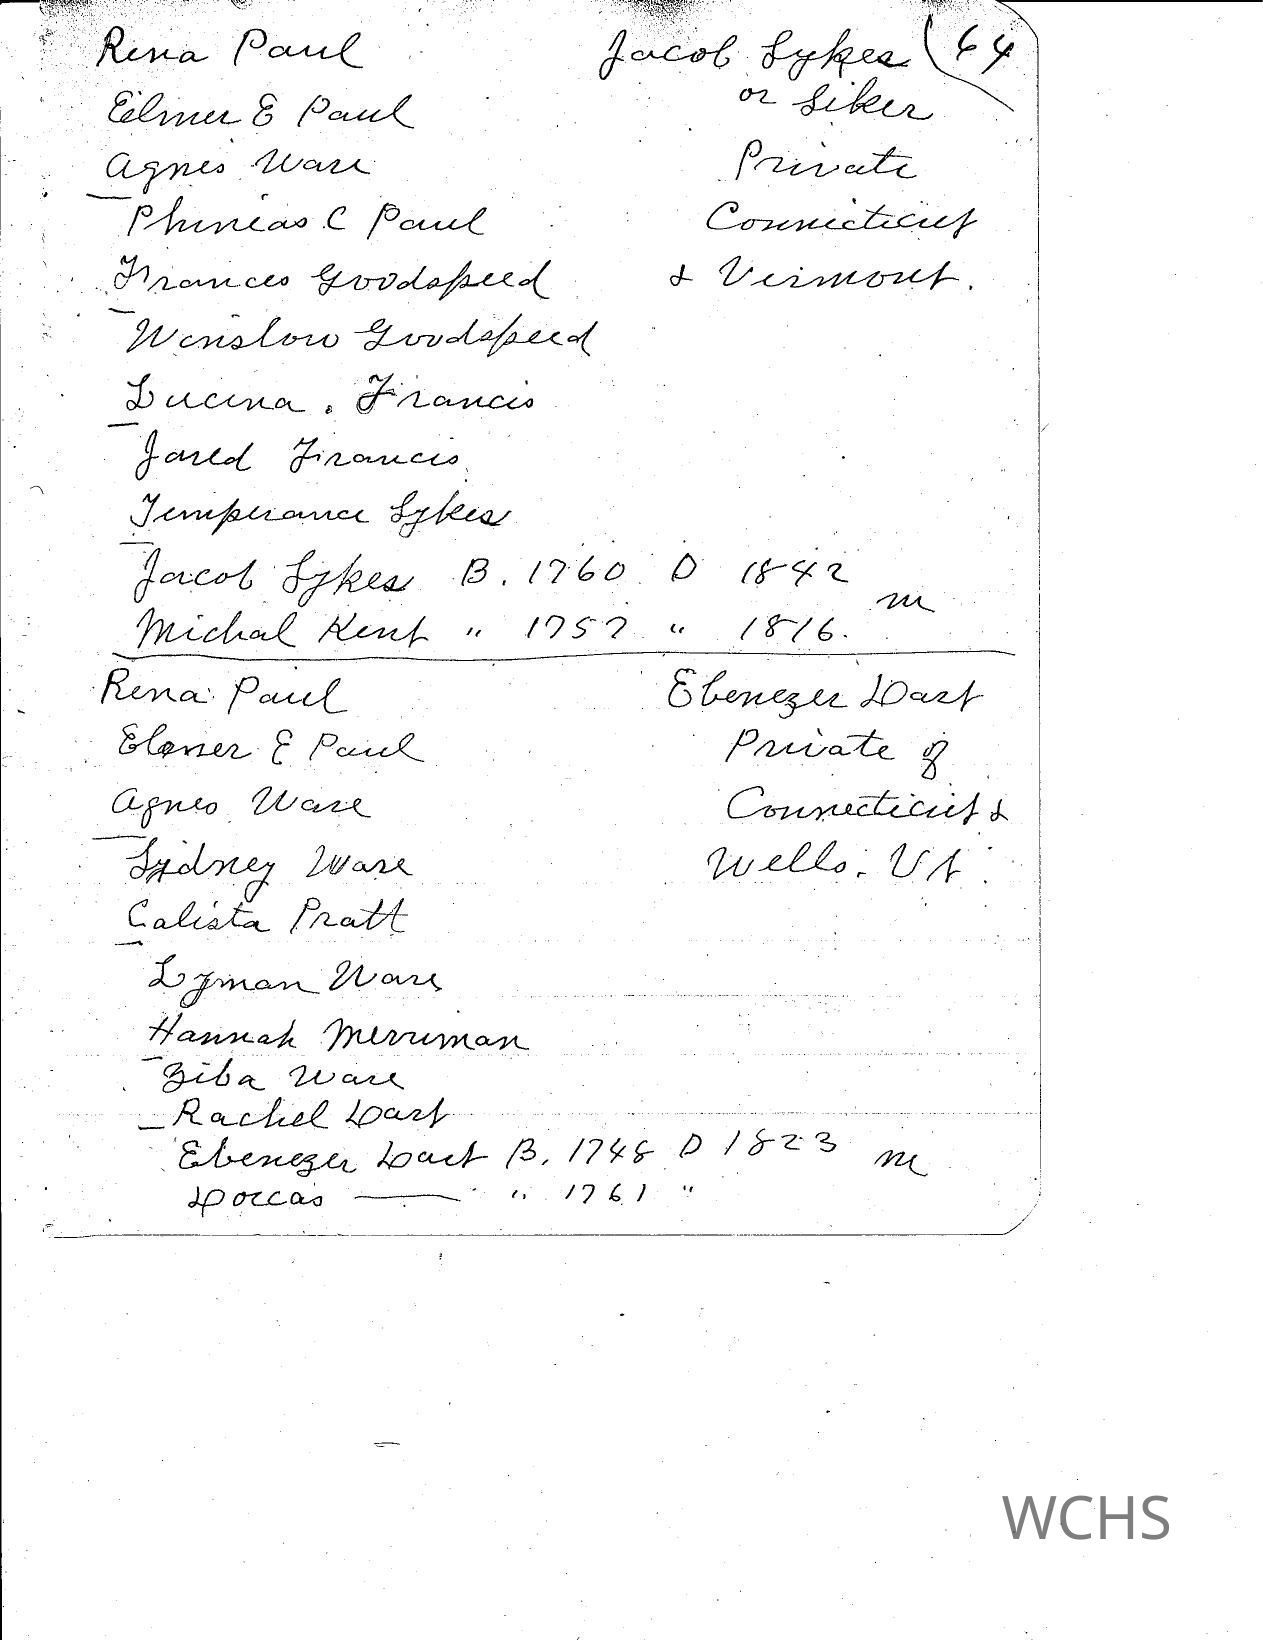 Rena Paul Jacob Sykes 64
Elmer E Paul or Siker
Agnes Ware Private
Phineas C Paul Connecticut
Frances Goodspeed & Vermont.
Winslow Goodspeed
Lucina. Francis
Jared Francis
Temperance Sykes
Jacob Sykes B. 1760 D 1842
m
Michal Kent " 1757 " 1816.
Rena Paul Ebenezer Dart
Elmer E Paul Private of
Agnes Ware Connecticut &
Sydney Ware Wells. Vt.
Calista Pratt
Lyman Ware
Hannah Merriman
Ziba Ware
Rachel Dart
Ebenezer Dart B. 1748 D 1823 m
Dorcas — " 1761 "
WCHS